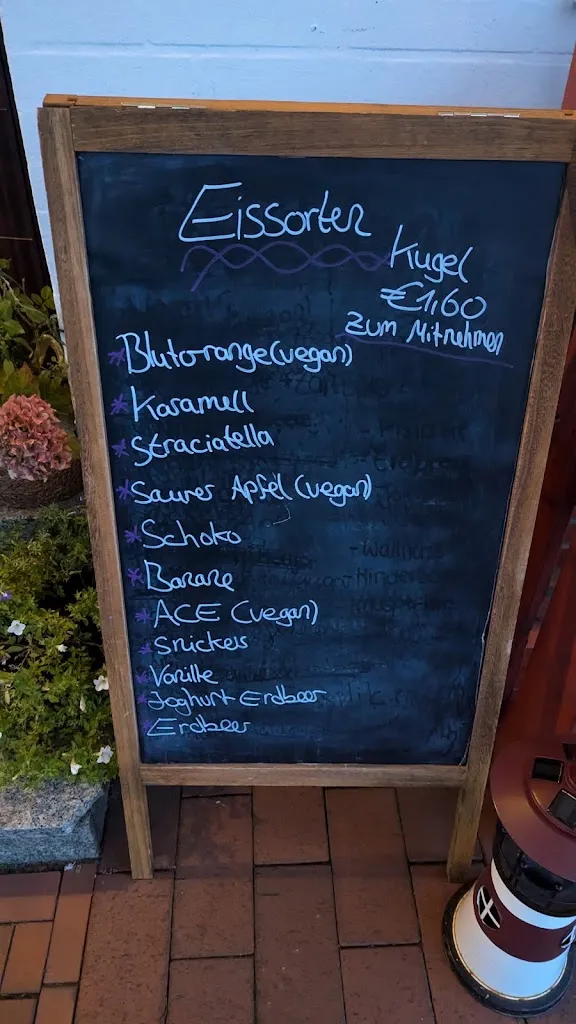 Eissorten
Kugel
€1,60
zum Mitnehmen
* Blutorange (vegan)
* Karamell
* Straciatella
* Saurer Apfel (vegan)
* Schoko
* Banane
* ACE (vegan)
* Snickers
* Vanille
* Joghurt-Erdbeer
* Erdbeer